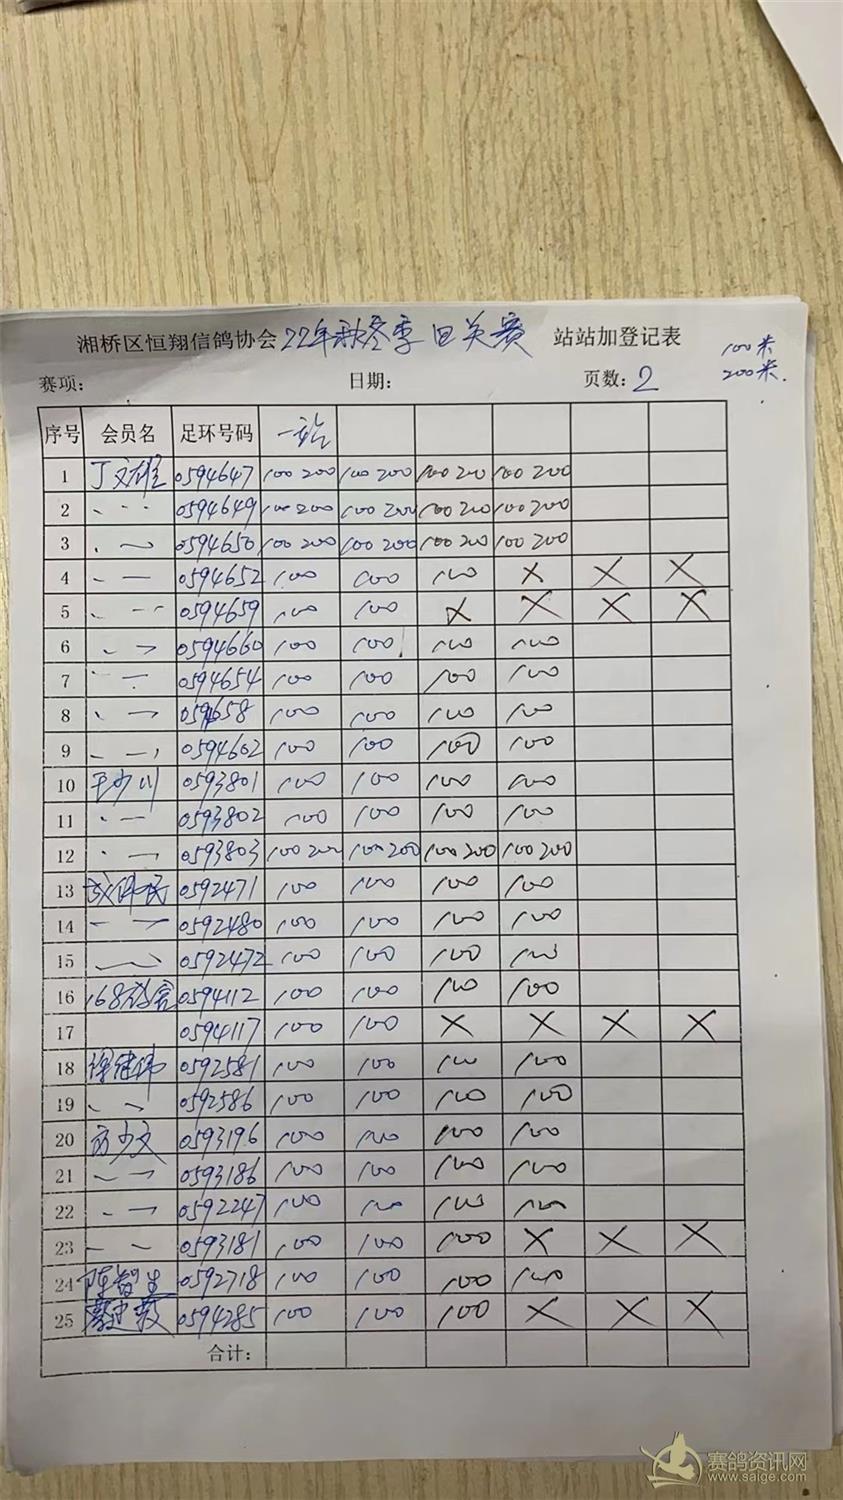 湘桥区恒翔信鸽协会 22年秋冬季回关赛 站站加登记表
100米
200米.
赛项: 日期: 页数: 2
序号 会员名 足环号码 一站
1 丁文雄 0594647 100 200 100 200 100 200 100 200
2 0594649 100 200 100 200 100 200 100 200
3 0594650 100 200 100 200 100 200 100 200
4 0594652 100 100 100 X X X
5 0594659 100 100 X X X X
6 0594660 100 100 100 100
7 0594654 100 100 100 100
8 0594658 100 100 100 100
9 0594602 100 100 100 100
10 0593801 100 100 100 100
11 0593802 100 100 100 100
12 0593803 100 200 100 200 100 200 100 200
13 0592471 100 100 100 100
14 0592480 100 100 100 100
15 0592472 100 100 100 100
16 168 0594112 100 100 100 100
17 0594117 100 100 X X X X
18 0592581 100 100 100 100
19 0592586 100 100 100 100
20 方少文 0593196 100 100 100 100
21 0593186 100 100 100 100
22 0592247 100 100 100 100
23 0593181 100 100 100 X X X
24 陈智生 0592718 100 100 100 100
25 0594285 100 100 100 X X X
合计:
赛鸽资讯网
www.saige.com